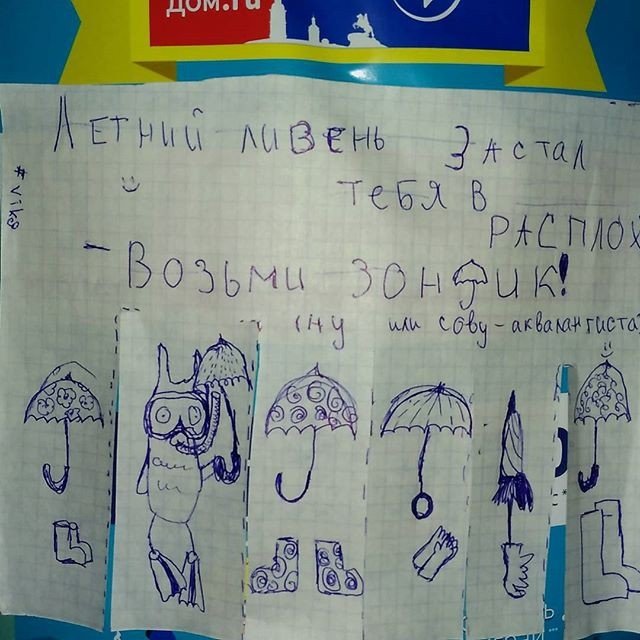 дом.ru
Летний ливень застал
тебя в
расплох
- Возьми зонтик!
ну или сову-аквалангиста
#vika